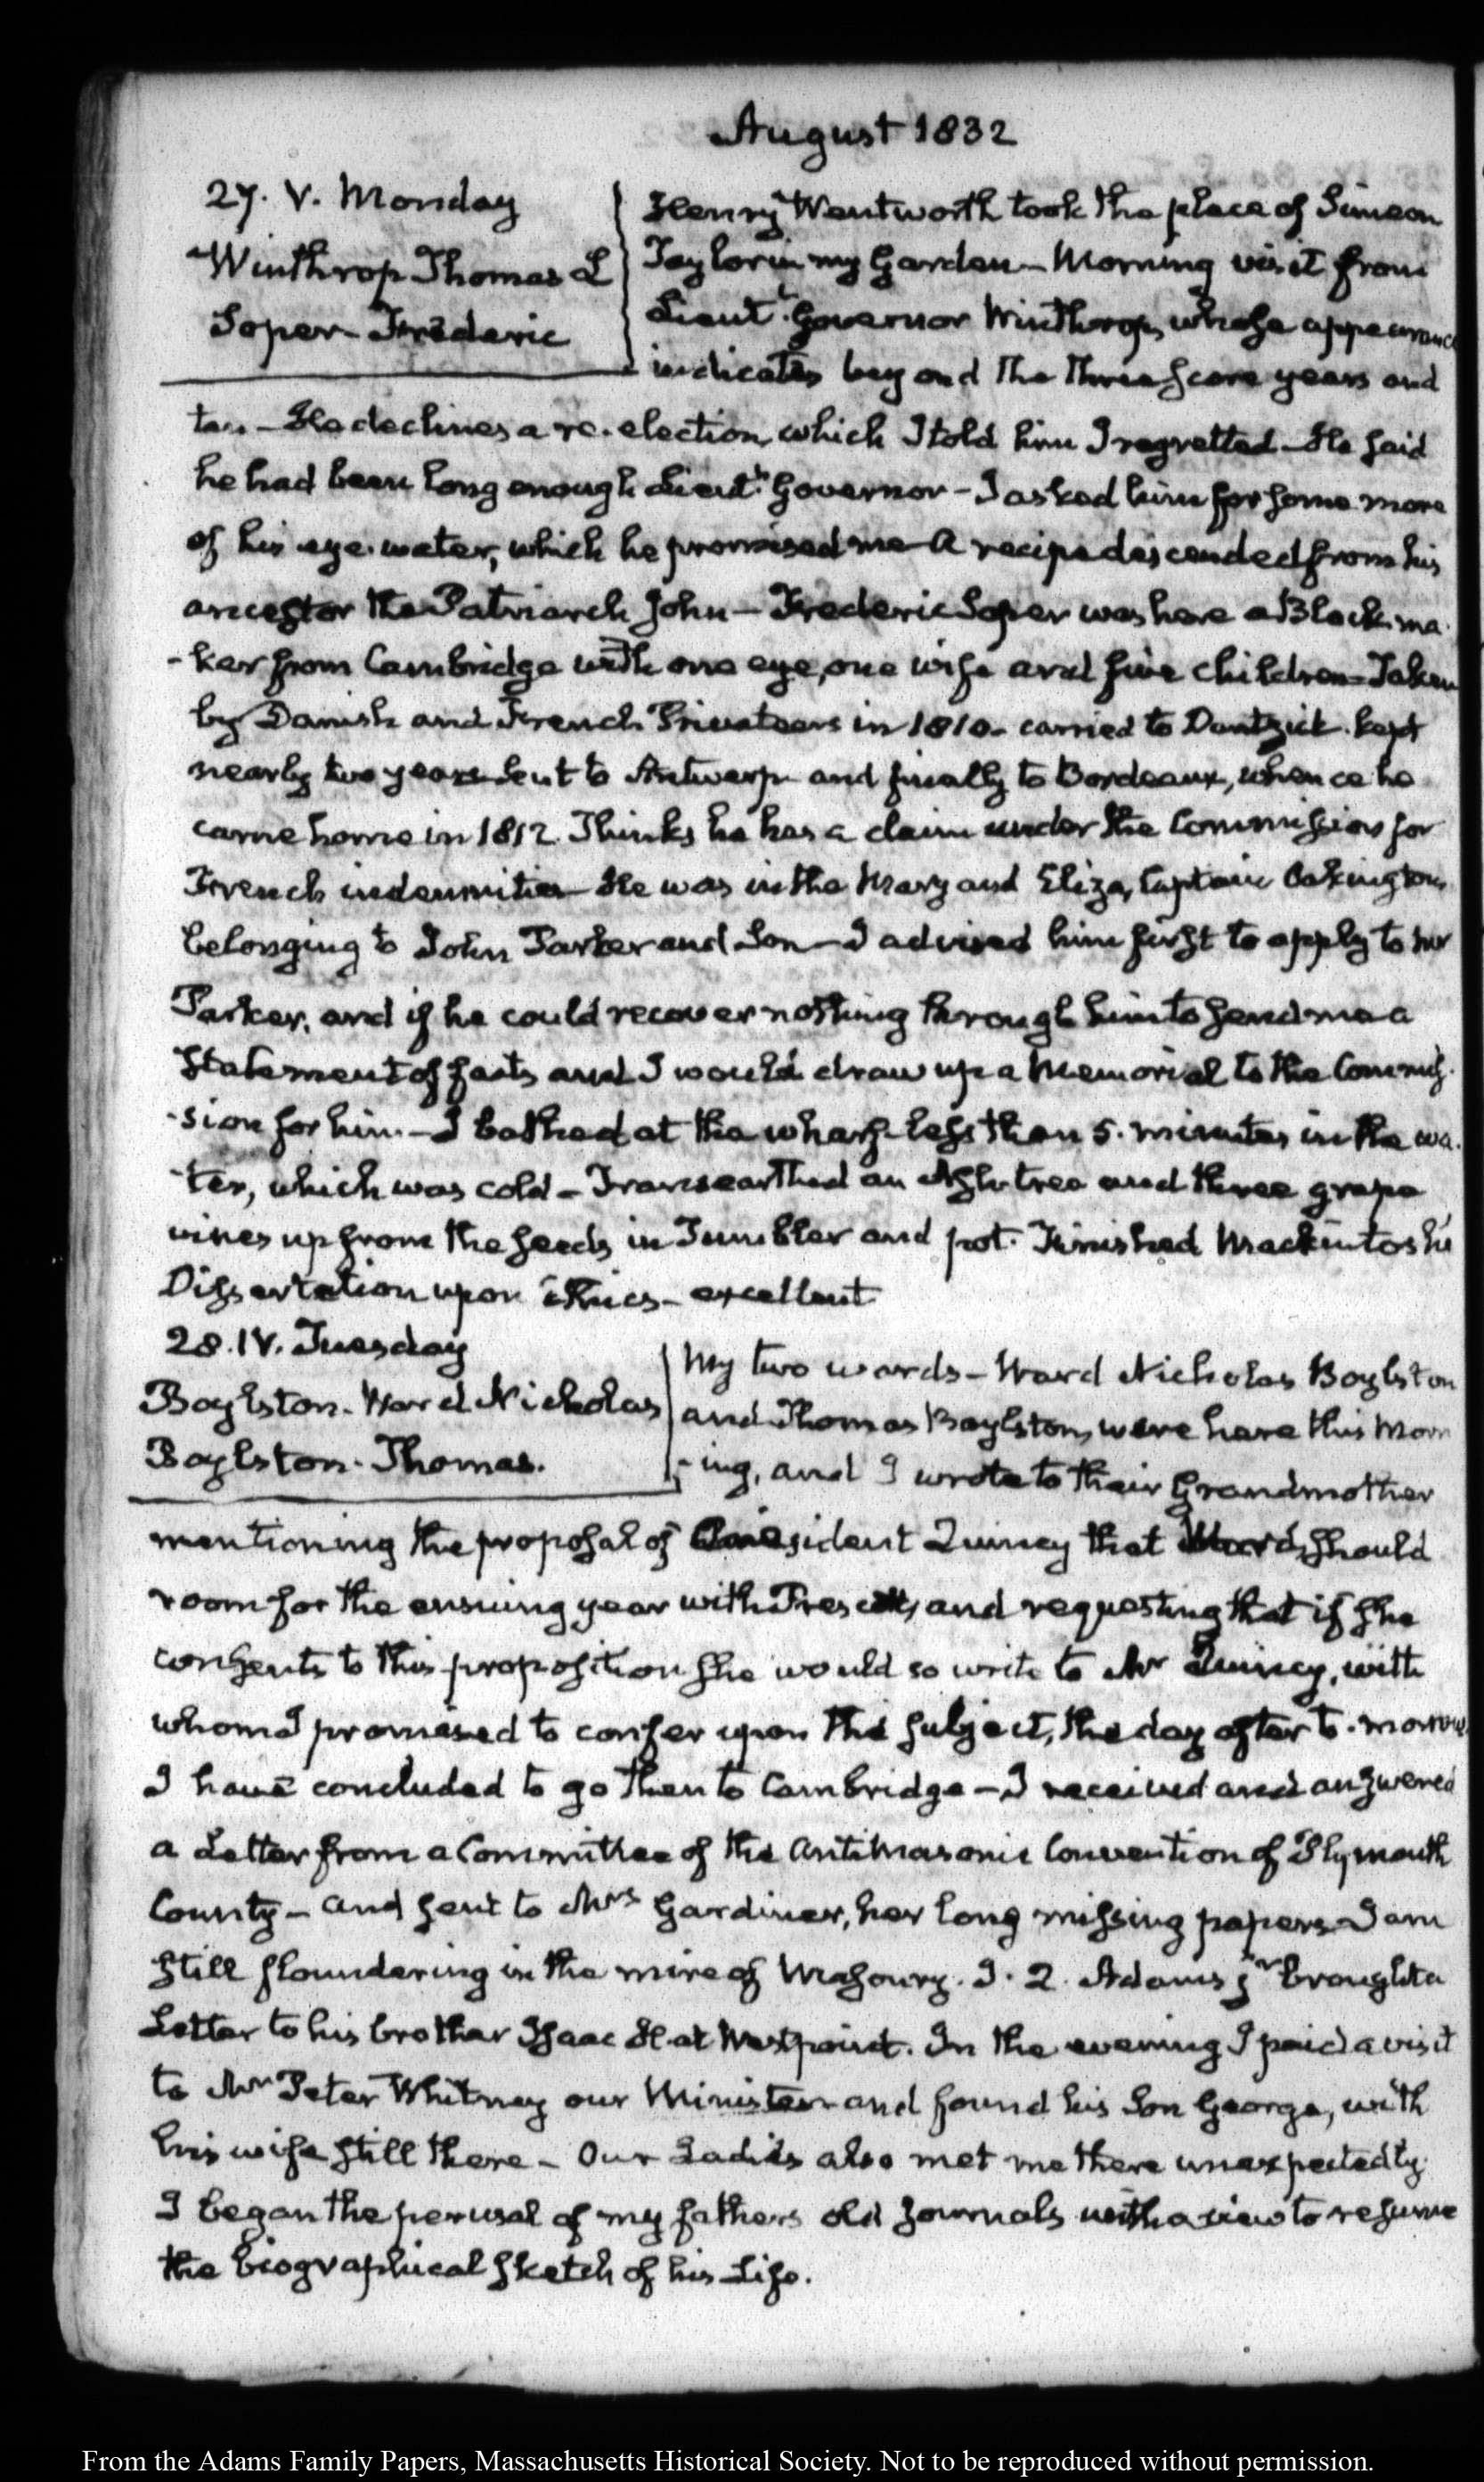 August 1832
27. V. Monday
Winthrop Thomas L
Soper- Frederic
Henry Wentworth took the place of Simeon
Taylor in my Garden- Morning visit from
Lieut.t Governor Winthrop, whose appearance
indicates beyond the three score years and
ten. - He declines a re-election, which I told him I regretted - He said
he had been long enough Lieut.t Governor - I asked him for some more
of his eye-water, which he promised me- A recipe descended from his
ancestor the Patriarch John - Frederic Soper was here a Block ma-
-ker from Cambridge with one eye, one wife and five children- Taken
by Danish and French Privateers in 1810- carried to Dantzick. kept
nearly two years- sent to Antwerp- and finally to Bordeaux, whence he
came home in 1812. Thinks he has a claim under the Commission for
French indemnities- He was in the Mary and Eliza, Captain
belonging to John Parker and Son - I advised him first to apply to Mr
Parker, and if he could recover nothing through him to send me a
statement of facts and I would draw up a Memorial to the Commis-
-sion for him. - I bathed at the wharf- less than 5. minutes in the wa-
-ter, which was cold - Transearthed an Ash-tree and three grape
vines up from the seeds in Tumbler and pot. Finished Mackintosh's
Dissertation upon Ethics- excellent
28. IV. Tuesday
Boylston. Ward Nicholas
Boylston- Thomas.
My two wards - Ward Nicholas Boylston
and Thomas Boylston, were here this Morn
-ing, and I wrote to their Grandmother
mentioning the proposal of President Quincy that Ward should
room for the ensuing year with Prescott, and requesting that if she
consents to this proposition she would so write to Mr Quincy, with
whom I promised to confer upon the subject, the day after to-morrow.
I have concluded to go then to Cambridge - I received and answered
a Letter from a Committee of the Antimasonic Convention of Plymouth
County - and sent to Mrs Gardiner, her long missing papers- I am
still floundering in the mire of Masonry. J. Q. Adams jr brought a
Letter to his brother Isaac H at Westpoint. In the evening I paid a visit
to Mr Peter Whitney our Minister- and found his Son George, with
his wife still there - Our Ladies also met me there unexpectedly.
I began the perusal of my fathers old Journals with a view to resume
the biographical sketch of his Life.
From the Adams Family Papers, Massachusetts Historical Society. Not to be reproduced without permission.